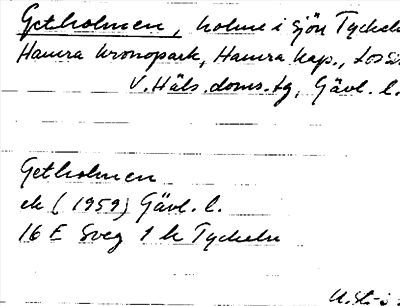 Getholmen, holme i sjön Tyckeln
Hamra kronopark, Hamra kap., Los s
V. Häls. doms.tg, Gävl. l.
Getholmen
ek (1959) Gävl. l.
16 E Sveg 1 h Tyckeln